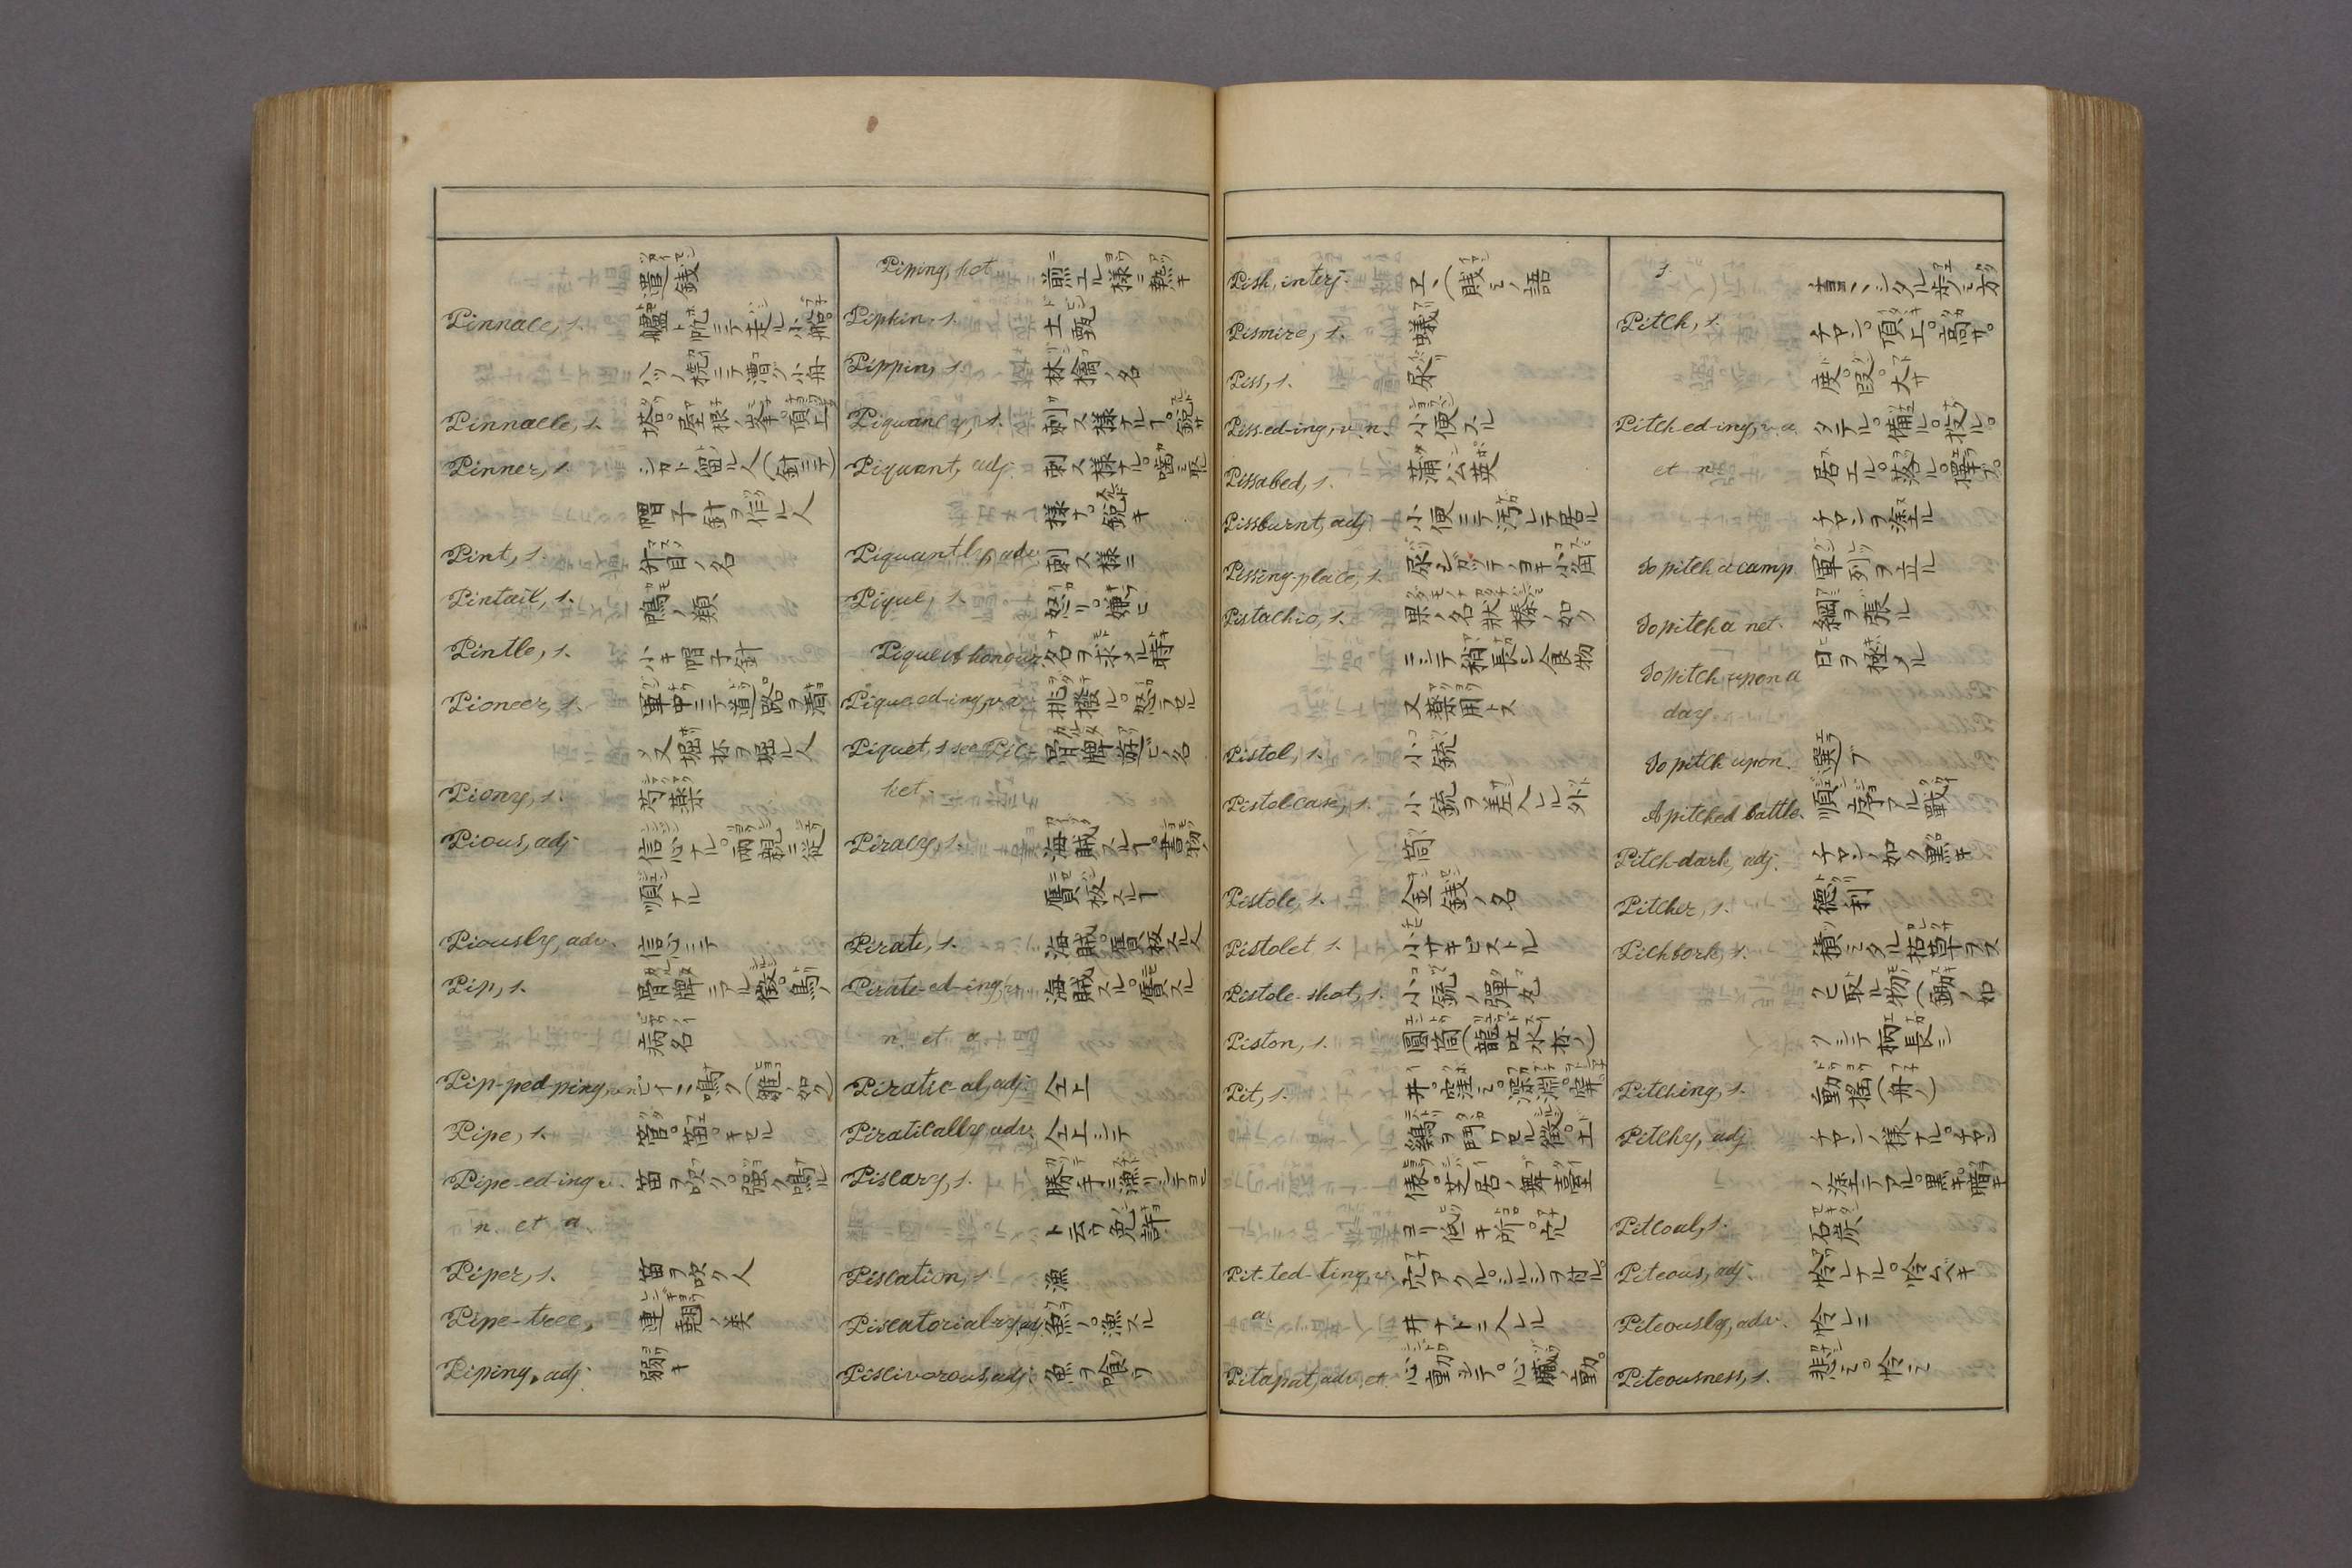 遣錢
Pinnace, s. 艫ト帆ニテ走ル小舩。
八ツノ橈ニテ漕グ小舟
Pinnacle, s. 塔。屋根ノ峯。頂上
Pinner, s. シカト留ル人(針ニテ)
帽子針ヲ作ル人
Pint, s. 舛目ノ名
Pintail, s. 鴨ノ類
Pintle, s. 小キ帽子針
Pioneer, s. 軍中ニテ道路ヲ
又堀抔ヲ堀ル人
Piony, s. 芍藥
Pious, adj. 信心ナル。兩親ニ從
順ナル
Piously, adv. 信心ニテ
Pip, s. 骨牌ニアル徴。鳥ノ
病名
Pip-ped-ping, v.n. ピイニ鳴ク(雛ノ如ク)
Pipe, s. 管。笛。キセル
Pipe-ed-ing v. 笛ヲ吹ク。強ク鳴ル
n. et a.
Piper, s. 笛ヲ吹ク人
Pipe-tree, 連翹ノ類
Piping, adj. 弱キ
Piping, hot 煎エル様ニ熱キ
Pipkin, s. 土甄
Pippin, s. 林檎ノ名
Piquancy, s. 刺ス様ナルヿ。鋭サ
Piquant, adj. 刺ス様ナル。
様ナ。鋭キ
Piquantly, adv. 刺ス様ニ
Pique, s. 怒リ。嫌ヒ
Pique of honour 名ヲ求メル時
Pique-ed-ing, v.a. 挑撥ル。怒ラセル
Piquet, s. see Pic- 骨牌遊ビノ名
ket.
Piracy, s. 海賊スルヿ。書物
贋板スルヿ
Pirate, s. 海賊。贋板スル人
Pirate-ed-ing, v. 海賊スル。贋スル
n. et a.
Piratic-al, adj. 仝上
Piratically adv. 仝上シテ
Piscary, s. 勝手ニ漁リシテヨヒ
ト云フ免許
Piscation, s. 漁
Piscatorial-ry, adj. 魚ノ。漁スル
Piscivorous, adj. 魚ヲ喰フ
Pish, interj. エヽ(賤ミノ語
Pismire, s. 蟻
Piss, s. 尿
Piss-ed-ing, v.n. 小便スル
Pissabed, s. 蒲公英
Pissburnt, adj. 小便ニテ汚レテ居ル
Pissing-place, s. 尿
Pistachio, s. 果ノ名狀榛ノ如ク
ニシテ稍長シ食物
又藥用トス
Pistol, s. 小銃
Pistol-case, s. 小銃ヲ差入レル外
筒
Pistole, s. 金錢ノ名
Pistolet s. 小サキピストル
Pistole-shot, s. 小銃ノ彈丸
Piston, s. 圓筒(龍吐水抔ノ)
Pit, s. 井。窪ミ。深淵。穽。
鷄ヲ鬥ワセル徴。土
俵。芝居ノ舞臺
ヨリ低キ所。穴
Pit-ted-ting, v. 穴アクル。シルシヲ付ル。
a. 井ナドニ入レル
Pitapat, adv. et. 心動シテ。心臓ノ動。
s. 
Pitch, s. チヤン。頂上。高サ。
度。段。大サ
Pitch-ed-ing, v.a. タテル。備ル。投ル。
et n. 居エル。落ル。擇ブ。
チヤンヲ塗ル
To pitch a camp. 軍列ヲ立ル
To pitch a net. 網ヲ張ル
To pitch upon a 日ヲ極メル
day
To pitch upon. 選ブ
A pitched battle. 順序アル戰
Pitch-dark, adj. チヤンノ如ク黒キ
Pitcher, s. 德利
Pichfork, s. 積ミタル枯草ヲス
クヒ取ル物(鋤ノ如
クシテ柄長シ
Pitching, s. 動揺(舟ノ)
Pitchy, adj. チヤンノ様ナル。チヤン
ノ塗テアル。黒キ。暗キ
Pitcoal, s. 石炭
Piteous, adj. 怜レナル。怜ムベキ
Piteously, adv. 怜レニ
Piteousness, s. 悲ミ。怜ミ